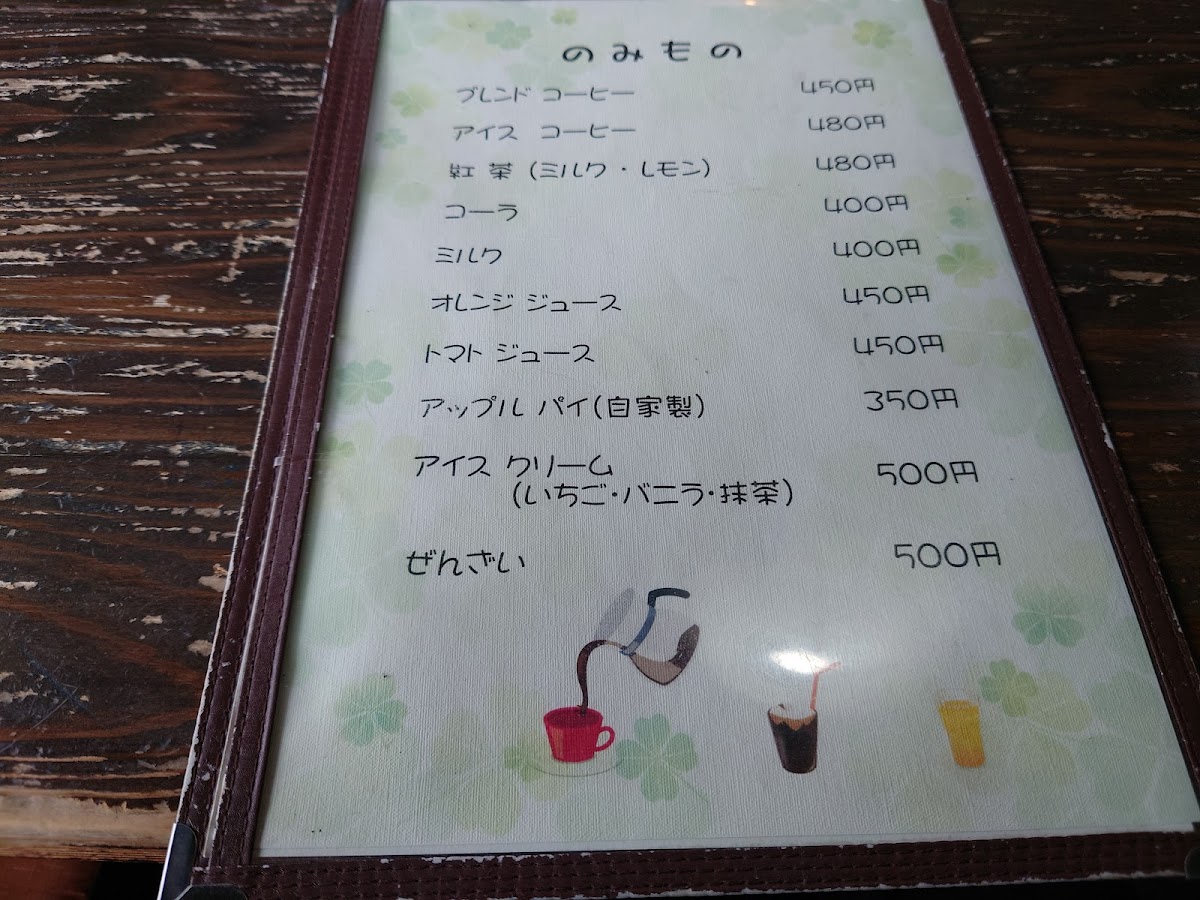 のみもの
ブレンド コーヒー 450円
アイス コーヒー 480円
紅 茶 (ミルク・レモン) 480円
コーラ 400円
ミルク 400円
オレンジ ジュース 450円
トマト ジュース 450円
アップル パイ(自家製) 350円
アイス クリーム 500円
(いちご・バニラ・抹茶)
ぜんざい 500円